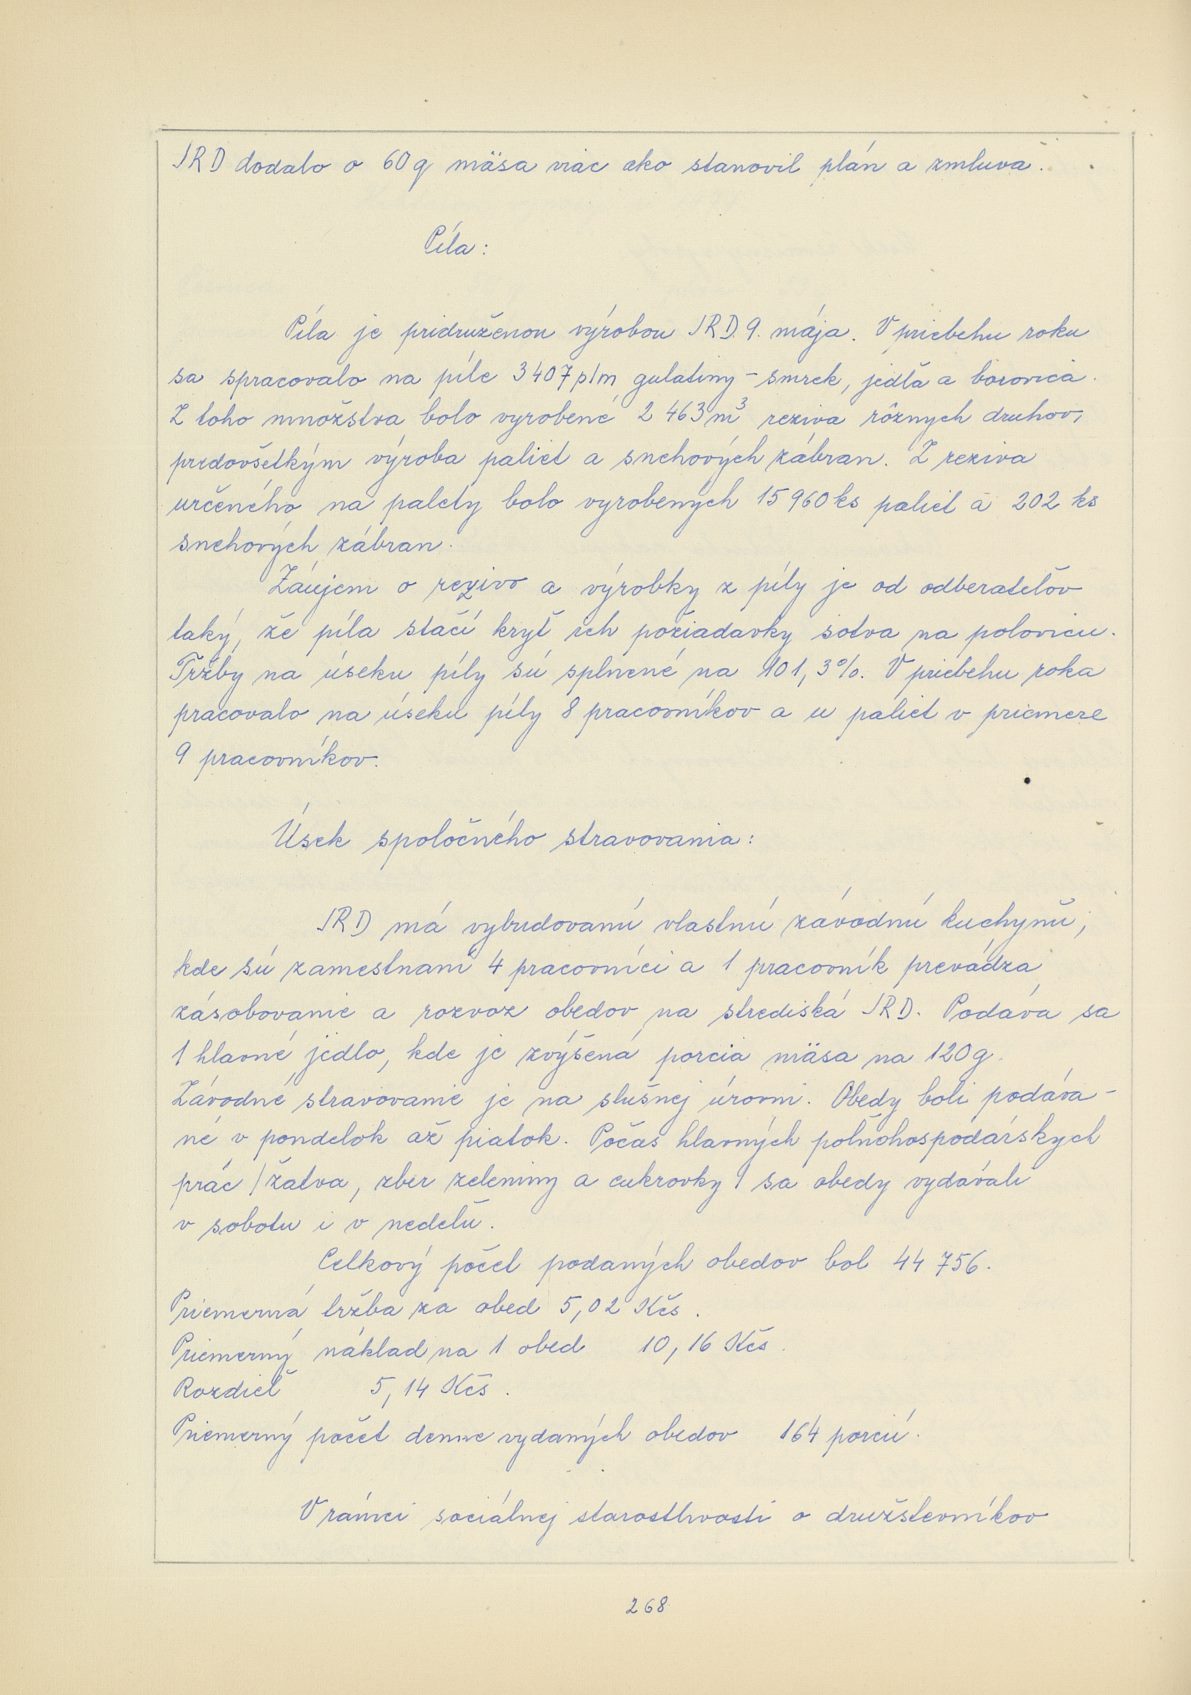 JRD dodalo o 60 q mäsa viac ako stanovil plán a zmluva.
Píla:
Píla je pridruženou výrobou JRD 9. mája. V priebehu roku
sa spracovalo na píle 3407 plm gulatiny - smrek, jedľa a borovica.
Z toho množstva bolo vyrobené 2 463 m³ reziva rôznych druhov,
predovšetkým výroba paliet a snehových zábran. Z reziva
určeného na palety bolo vyrobených 15 960 ks paliet a 202 ks
snehových zábran.
Záujem o rezivo a výrobky z píly je od odberateľov
taký, že píla stačí kryť ich požiadavky sotva na polovicu.
Tržby na úseku píly sú splnené na 101,3%. V priebehu roka
pracovalo na úseku píly 8 pracovníkov a u paliet v priemere
9 pracovníkov.
Úsek spoločného stravovania:
JRD má vybudovanú vlastnú závodnú kuchyňu,
kde sú zamestnaní 4 pracovníci a 1 pracovník prevádza
zásobovanie a rozvoz obedov na strediská JRD. Podáva sa
1 hlavné jedlo, kde je zvýšená porcia mäsa na 120 g.
Závodné stravovanie je na slušnej úrovni. Obedy boli podáva-
né v pondelok až piatok. Počas hlavných poľnohospodárskych
prác /žatva, zber zeleniny a cukrovky/ sa obedy vydávali
v sobotu i v nedeľu.
Celkový počet podaných obedov bol 44 756.
Priemerná tržba za obed 5,02 Kčs.
Priemerný náklad na 1 obed 10,16 Kčs.
Rozdiel 5,14 Kčs.
Priemerný počet denne vydaných obedov 164 porcií.
V rámci sociálnej starostlivosti o družstevníkov
268